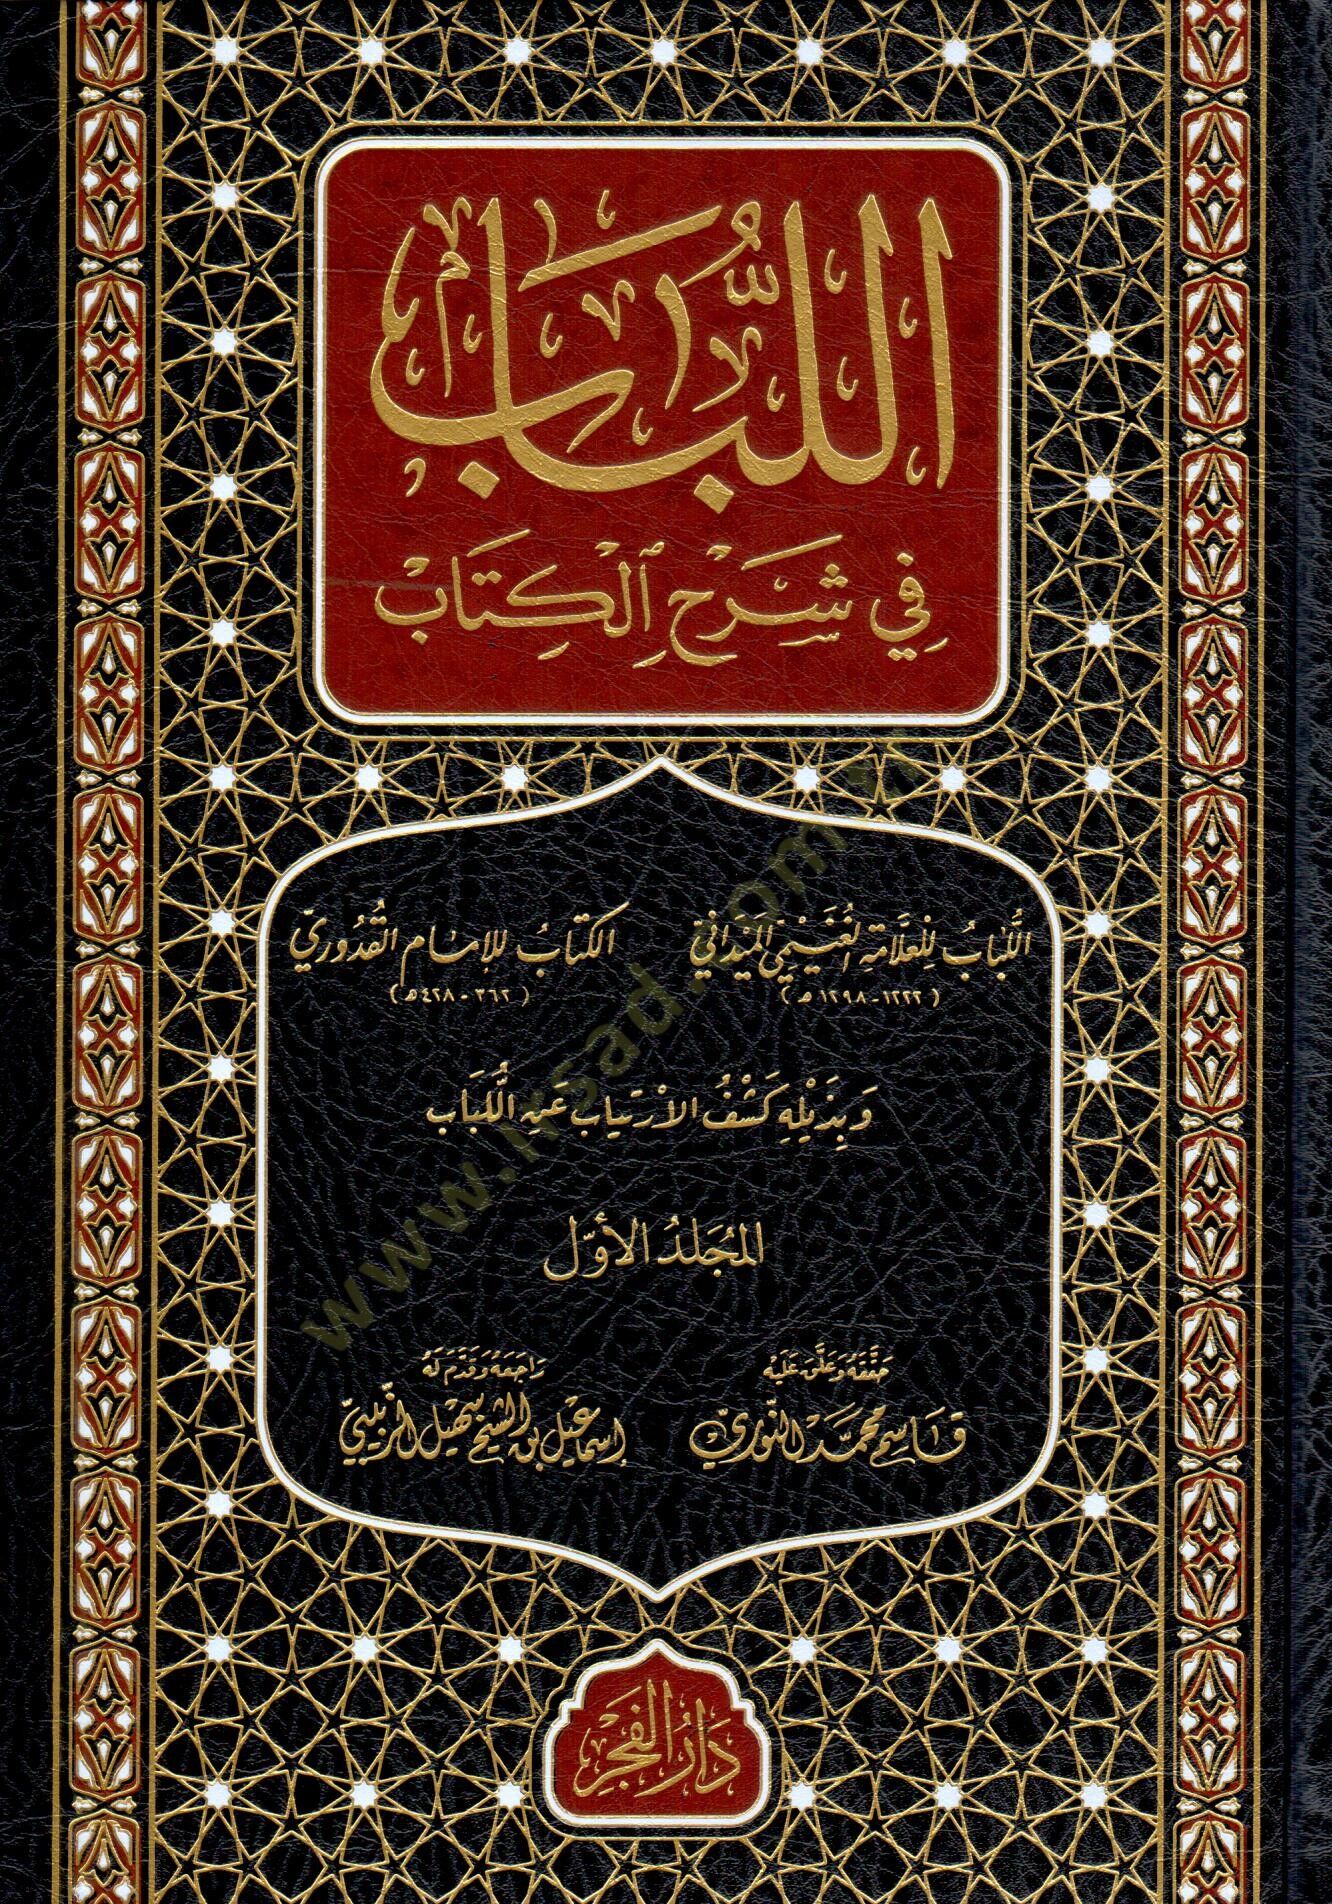 اللُّبَابُ
فِي شَرْحِ الْكِتَابْ
اللُّبَابُ لِلْعَلَّامَةِ الْغُنَيْمِيِّ الْمَيْدَانِيِّ
(١٢٢٢-١٢٩٨هـ)
الكِتَابُ لِلإِمَامِ القُدُورِيِّ
(٣٦٢-٤٢٨هـ)
وَبِذَيْلِهِ كَشْفُ الِارْتِيَابِ عَنِ اللُّبَابِ
المُجَلدُ الأوّل
حَقَّقَهُ وَعَلَّقَ عَلَيْهِ
قَاسِم مُحَمَّد النُّورِيّ
رَاجَعَهُ وَقَدَّمَ لَهُ
إِسْمَاعِيل بْن الشَّيْخ سُهَيْل الزَّبِيبِيّ
دَارُ الفَجْرِ
www.irsad.com.tr